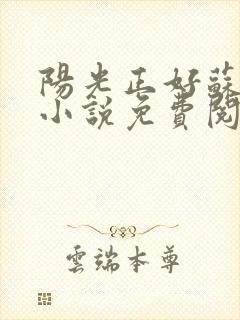 陽光正好蘇
小說免費閱
雲端本尊